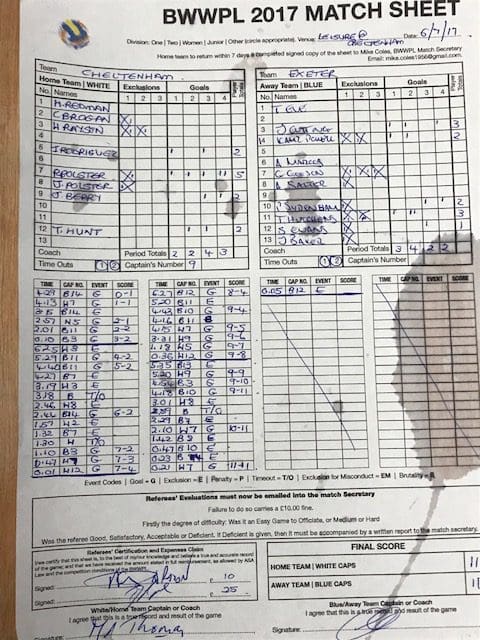 BWWPL 2017 MATCH SHEET
Division: One | Two | Women | Junior | Other (circle appropriate), Venue: LEISURE@ CHELTENHAM Date: 6/7/17
Home team to return within 7 days a completed signed copy of the sheet to Mike Coles, BWWPL Match Secretary
Email: mike.coles1956@gmail.com
Team CHELTENHAM
Home Team | WHITE Exclusions Goals Player Totals
No. Names 1 2 3 1 2 3 4
1 H. REDMAN
2 C BROGAN X
3 H RAYSON X X
4
5 I RODRIGUEZ 2
6
7 R POLSTER X 5
8 J. POLSTER X
9 J BERRY 2
10
11
12 T. HUNT 2
13
Coach Period Totals 2 2 4 3
Time Outs 1 2 Captain's Number 9
Team EXETER
Away Team | BLUE Exclusions Goals Player Totals
No. Names 1 2 3 1 2 3 4
1 T EVE
2
3 J CUTTING 3
4 X X 2
5
6
7 C X X X
8 A SALTER X
9
10 SYDENHAM X 2
11 T HUTCHENS X X 3
12 S EWANS X 1
13 J BAKER X
Coach Period Totals 3 4 2 2
Time Outs 1 2 Captain's Number
TIME CAP NO. EVENT SCORE TIME CAP NO. EVENT SCORE TIME CAP NO. EVENT SCORE TIME CAP NO. EVENT SCORE
4.29 B14 G 0-1 6.27 B12 G 8-4 0.05 B12 E
4.13 H7 G 1-1 5.20 B11 E
B14 E 4.43 B10 G 9-4
2.57 H5 G 2-1 4.16 B11 E
2.01 B11 G 2-2 4.15 H7 G 9-5
0.10 B3 G 3-2 3.31 H9 G 9-6
H8 E 1.18 H5 G 9-7
5.29 B11 G 4-2 0.36 H12 G 9-8
4.40 B11 G 5-2 5.35 B13 E
4.27 B7 E 5.20 H9 G 9-9
3.19 H3 E B3 G 9-10
3.18 B T/O 4.18 B10 G 9-11
2.46 H8 E 3.01 H8 E
2.44 B14 G 6-2 B T/O
1.57 H2 E 2.29 B7 E
1.32 B7 E 2.10 H7 G 10-11
1.30 H T/O 1.42 B8 E
1.10 B3 G 7-2 0.47 B10 E
0.47 H7 G 7-3 0.23 B E
0.01 H12 G 7-4 0.21 H7 G 11-11
Event Codes | Goal = G | Exclusion = E | Penalty = P | Timeout = T/O | Exclusion for Misconduct = EM | Brutality = B
Referees' Evaluations must now be emailed into the match Secretary
Failure to do so carries a £10.00 fine.
Firstly the degree of difficulty: Was it an Easy Game to Officiate, or Medium or Hard
Was the referee Good, Satisfactory, Acceptable or Deficient. If Deficient is given, then it must be accompanied by a written report to the match secretary.
Referees' Certification and Expenses Claim
I/we certify that this sheet is, to the best of my/our knowledge and believe a true and accurate record
of the game; and that we have received the amount stated in full reimbursement, as allowed by ASA
Law and the competition conditions of the BWWPL.
Signed: £ 10
Signed: £ 25
FINAL SCORE
HOME TEAM | WHITE CAPS 11
AWAY TEAM | BLUE CAPS 11
White/Home Team Captain or Coach
I agree that this is a true record and result of the game.
Blue/Away Team Captain or Coach
I agree that this is a true record and result of the game.
Signature: